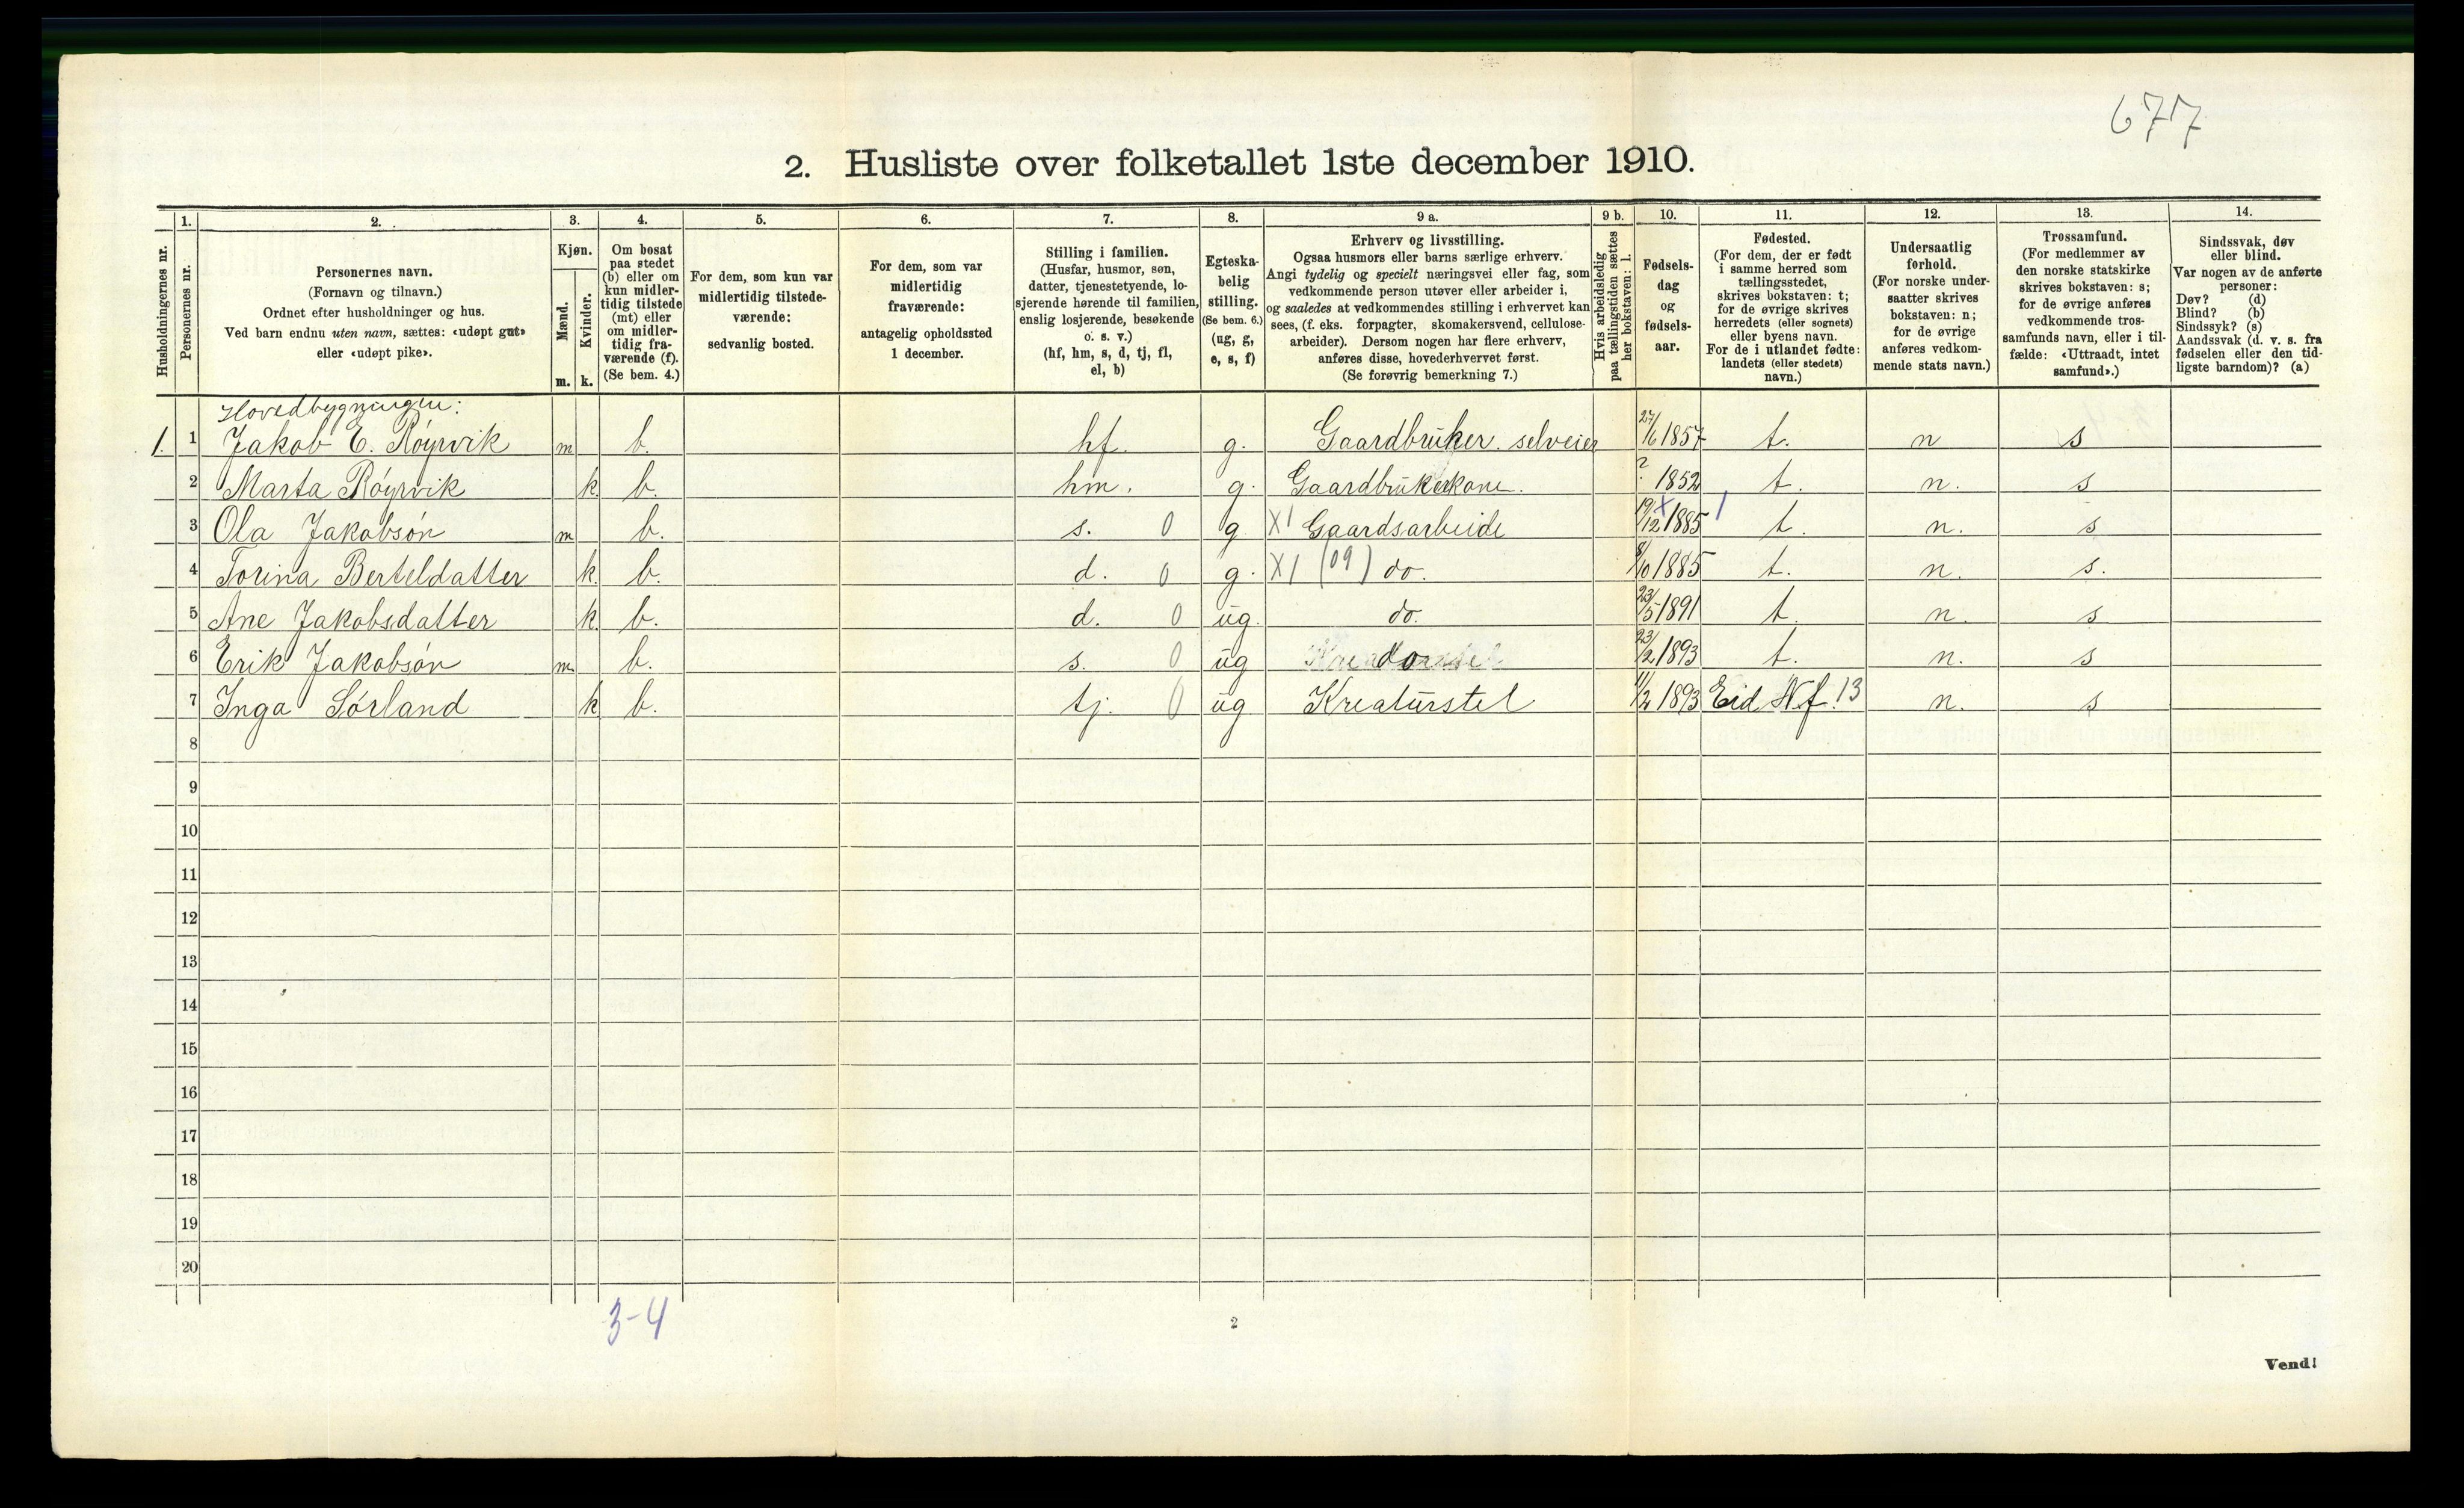 677
2. Husliste over folketallet 1ste december 1910.
1. 2. 3. 4. 5. 6. 7. 8. 9 a. 9 b. 10. 11. 12. 13. 14.
Husholdningernes nr.
Personernes nr.
Personernes navn.
(Fornavn og tilnavn.)
Ordnet efter husholdninger og hus.
Ved barn endnu uten navn, sættes: «udøpt gut»
eller «udøpt pike».
Kjøn.
Mænd.
Kvinder.
m. k.
Om bosat
paa stedet
(b) eller om
kun midler-
tidig tilstede
(mt) eller
om midler-
tidig fra-
værende (f).
(Se bem. 4.)
For dem, som kun var
midlertidig tilstede-
værende:
sedvanlig bosted.
For dem, som var
midlertidig
fraværende:
antagelig opholdssted
1 december.
Stilling i familien.
(Husfar, husmor, søn,
datter, tjenestetyende, lo-
sjerende hørende til familien,
enslig losjerende, besøkende
o. s. v.)
(hf, hm, s, d, tj, fl,
el, b)
Egteska-
belig
stilling.
(Se bem. 6.)
(ug, g,
e, s, f)
Erhverv og livsstilling.
Ogsaa husmors eller barns særlige erhverv.
Angi tydelig og specielt næringsvei eller fag, som
vedkommende person utøver eller arbeider i,
og saaledes at vedkommendes stilling i erhvervet kan
sees, (f. eks. forpagter, skomakersvend, cellulose-
arbeider). Dersom nogen har flere erhverv,
anføres disse, hovederhvervet først.
(Se forøvrig bemerkning 7.)
Hvis arbeidsledig
paa tællingstiden sættes
her bokstaven: l.
Fødsels-
dag
og
fødsels-
aar.
Fødested.
(For dem, der er født
i samme herred som
tællingsstedet,
skrives bokstaven: t;
for de øvrige skrives
herredets (eller sognets)
eller byens navn.
For de i utlandet fødte:
landets (eller stedets)
navn.)
Undersaatlig
forhold.
(For norske under-
saatter skrives
bokstaven: n;
for de øvrige
anføres vedkom-
mende stats navn.)
Trossamfund.
(For medlemmer av
den norske statskirke
skrives bokstaven: s;
for de øvrige anføres
vedkommende tros-
samfunds navn, eller i til-
fælde: «Uttraadt, intet
samfund».)
Sindssvak, døv
eller blind.
Var nogen av de anførte
personer:
Døv? (d)
Blind? (b)
Sindssyk? (s)
Aandssvak (d. v. s. fra
fødselen eller den tid-
ligste barndom)? (a)
Hovedbygningen:
1. 1 Jakob E. Røyrvik m b. hf. g. Gaardbruker. selveier 27/6 1857 t. n s
2 Marta Røyrvik k. b. hm. g. Gaardbrukerkone. ? 1852 t. n. s
3 Ola Jakobsøn m b. s. 0 g X1 Gaardsarbeide 19/12 X 1885 1 t. n. s
4 Torina Berteldatter k. b. d. 0 g. X1 (09) do. 8/10 1885 t. n. s.
5 Ane Jakobsdatter k. b. d. 0 ug. do. 23/5 1891 t. n. s
6 Erik Jakobsøn m. b. s. 0 ug do 23/2 1893 t. n. s
7 Inga Sørland k b. tj. 0 ug Kreaturstel 11/2 1893 Eid Nf. 13 n. s
8
9
10
11
12
13
14
15
16
17
18
19
20
3-4
2
Vend!